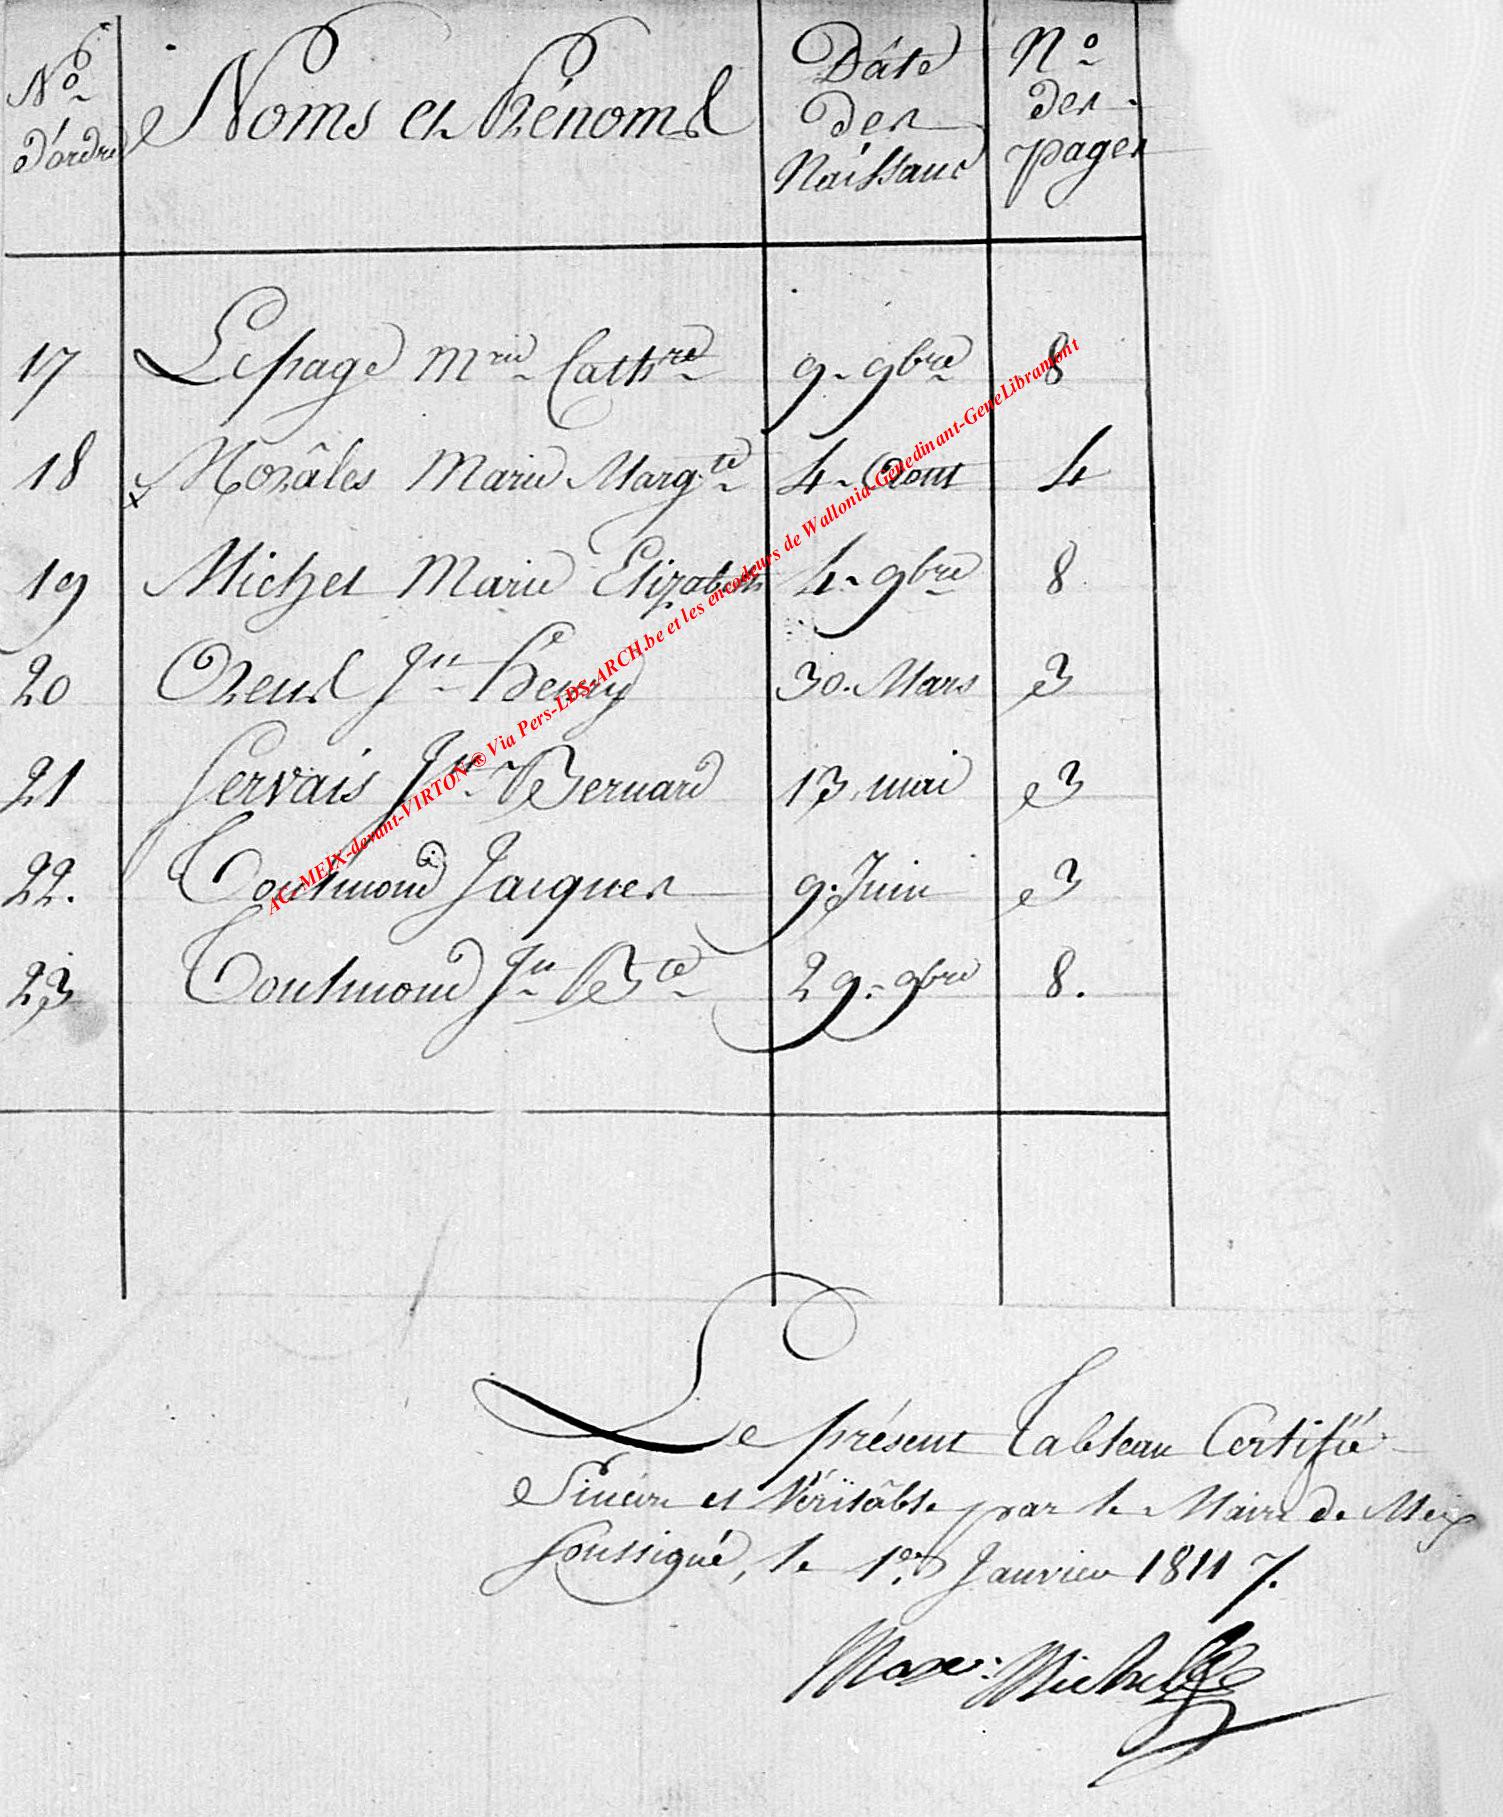 N° d'ordre Noms et Prénoms Dâte des Naissanc N° des pages
17 Lepage Mrie Cathre 9. 9bre 8
18 x Norâles Marie Margte 4. Aout 4
19 Michel Marie Elizabeth 4. 9bre 8
20 Jn Henry 30. Mars 3
21 Gervais Jn Bernard 13 mai 3
22. Toutmond Jacques 9. Juin 3
23 Toutmond Jn Bte 29. 9bre 8.
AC-MEIX-devant-VIRTON® Via Pers-LDS-ARCH.be et les encodeurs de Wallonia-Genedinant-GeneLibramont
Le présent Tableau Certifié
Sincère et Véritâble par le Maire de Meix
soussigné, le 1er Janvier 1811 7.
Max: Michel